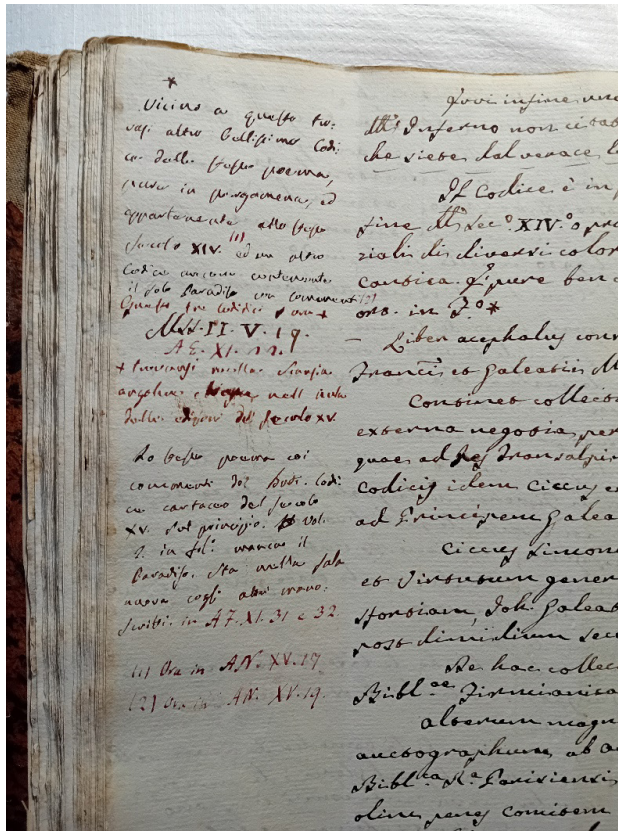 *
Vicino a questo tro-
vasi altro bellissimo Codi-
ce dello stesso poema,
pure in pergamena, ed
appartenente allo stesso
secolo XIV. (1) ed un altro
Codice ancora contenente
il solo Paradiso con commenti (2)
Questi tre codici sono +
MSS. II. V. 19.
AE. XI. 12.
+ trovansi nella Scansia
nell
delle edizioni del secolo XV.
Lo stesso poema coi
commenti del Buti. Codi-
ce cartaceo del secolo
XV. sul principio. vol.
2. in fol. manca il
Paradiso. Sta nella sala
nuova cogli altri mano-
scritti in AF. XI. 31 e 32.
(1) Ora in AN. XV. 17
(2) Ora in AN. XV. 19.
Ivi infine
Inferno non
che siete dal verace
Il Codice è in
fine del sec.º XIV.º o
di diversi color
cantica. È pure ben
in F.º *
– Liber acephalus
Francisci et Galeatii M
Continet collecti
externa negotia, per
quae ad res Transalpi
codicis idem Ciccus
ad Principem Galea
Ciccus Simon
et Virtutum gener
Sfortiam, Joh. Galea
post dimidium sec
De hac collec
Bibl.ae Firmianae
alterum magn
auctographum, ab
Bibl.ca R.a Parisiensi
olim penes comitem